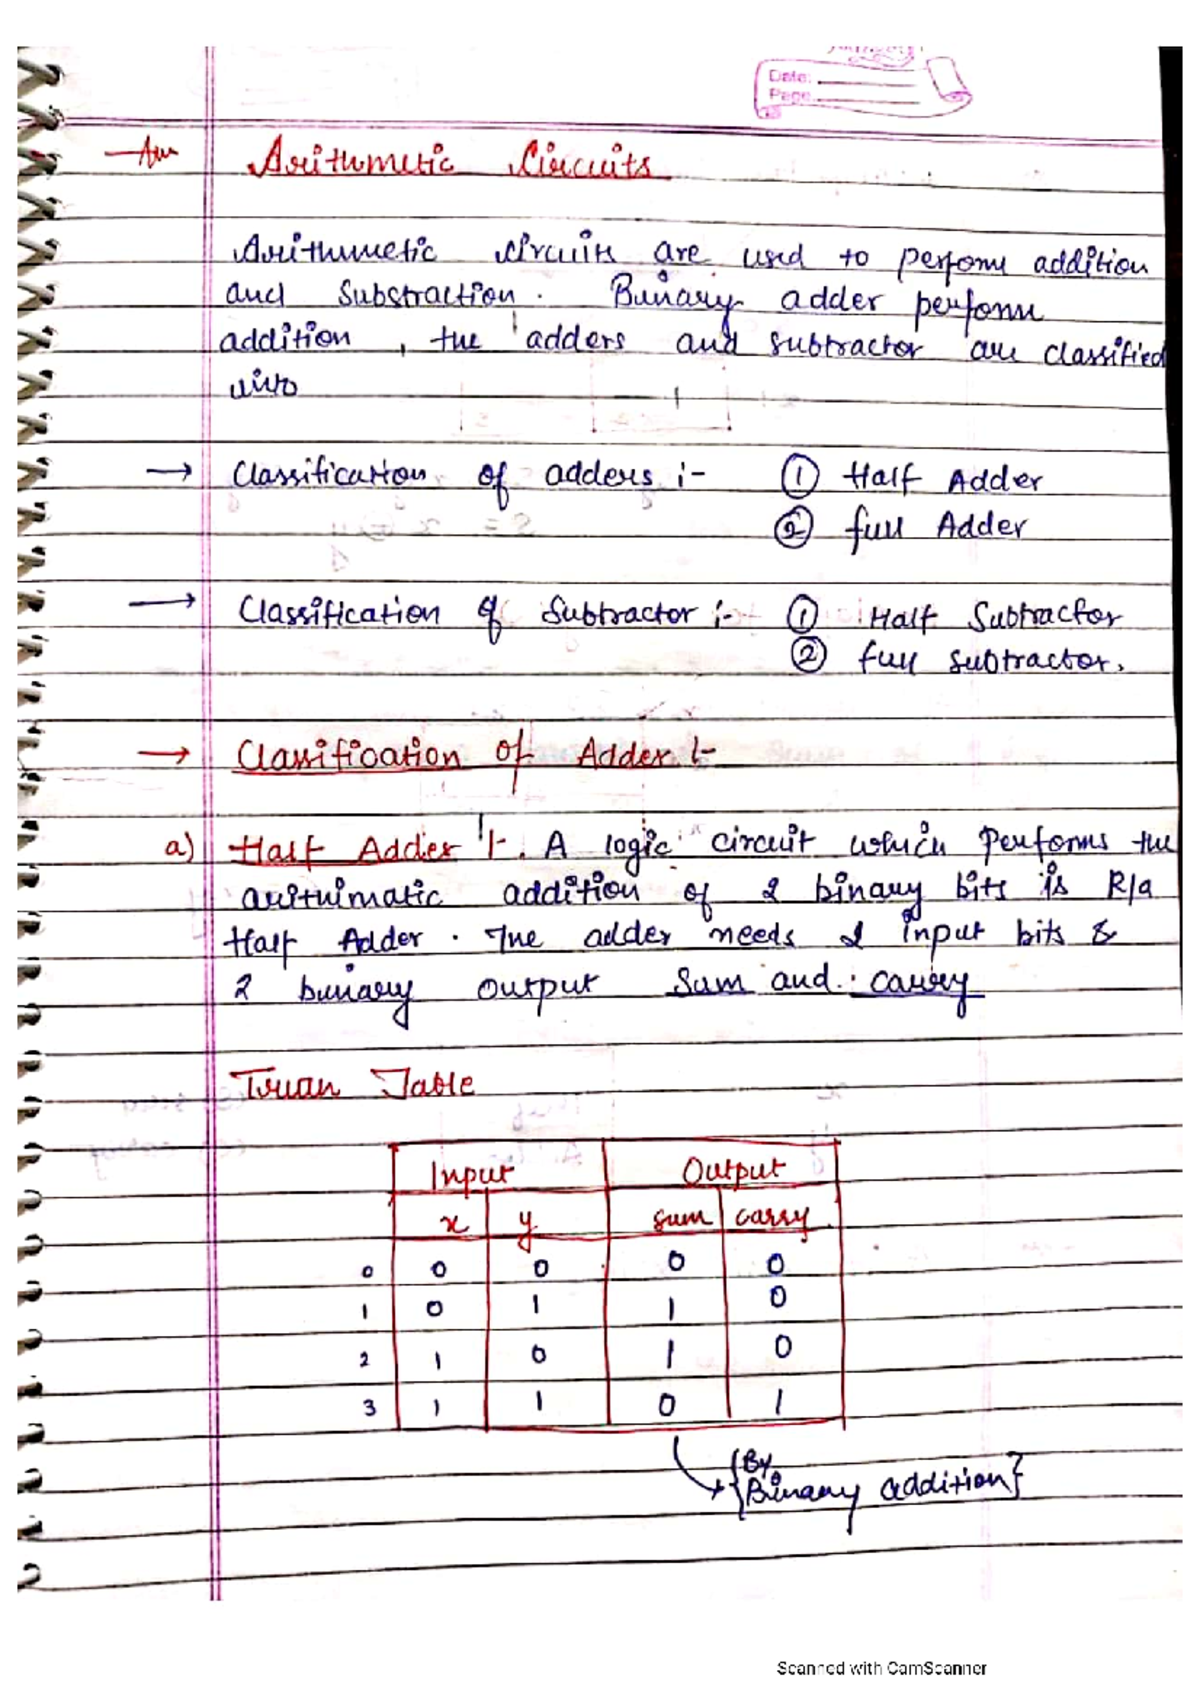 Date:
Page
Ans Arithmetic Circuits
Arithmetic circuits are used to perform addition
and Substraction. Binary adder perform
addition, the adders and subtractor are classified
into
→ Classification of adders :- ① Half Adder
② full Adder
→ Classification of Subtractor :- ① Half Subtractor
② full subtractor.
→ Classification of Adder :-
a) Half Adder :- A logic circuit which performs the
arithimatic addition of 2 binary bits is R/a
Half Adder. The adder needs 2 input bits &
2 binary output Sum and carry
Truth Table
Input Output
x y sum carry
0 0 0 0 0
1 0 1 1 0
2 1 0 1 0
3 1 1 0 1
{By
{Binary addition}
Scanned with CamScanner